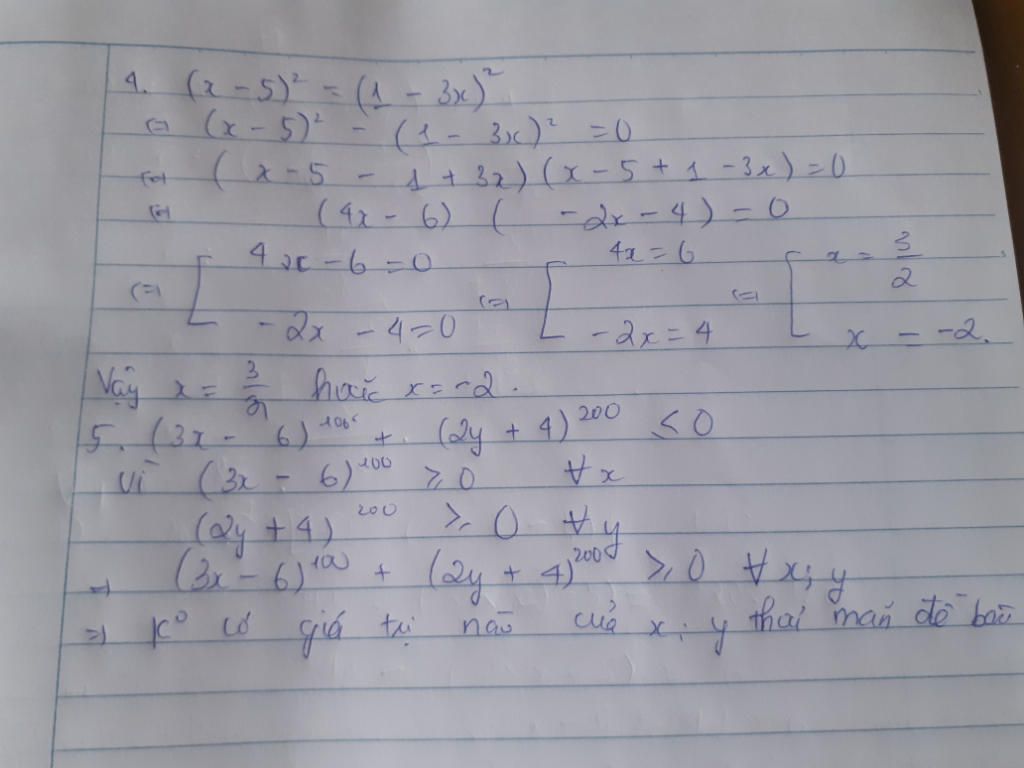 4. (x - 5)² = (1 - 3x)²
⇔ (x - 5)² - (1 - 3x)² = 0
⇔ (x - 5 - 1 + 3x) (x - 5 + 1 - 3x) = 0
⇔ (4x - 6) ( - 2x - 4) = 0
⇔ [ 4x - 6 = 0 ⇔ [ 4x = 6 ⇔ [ x = 3/2
- 2x - 4 = 0 - 2x = 4 x = -2.
Vậy x = 3/2 hoặc x = -2.
5. (3x - 6)¹⁰⁰ + (2y + 4)²⁰⁰ ≤ 0
Vì (3x - 6)¹⁰⁰ ≥ 0 ∀x
(2y + 4)²⁰⁰ ≥ 0 ∀y
⇒ (3x - 6)¹⁰⁰ + (2y + 4)²⁰⁰ ≥ 0 ∀x; y
⇒ K⁰ có giá trị nào của x; y thỏa mãn đề bài